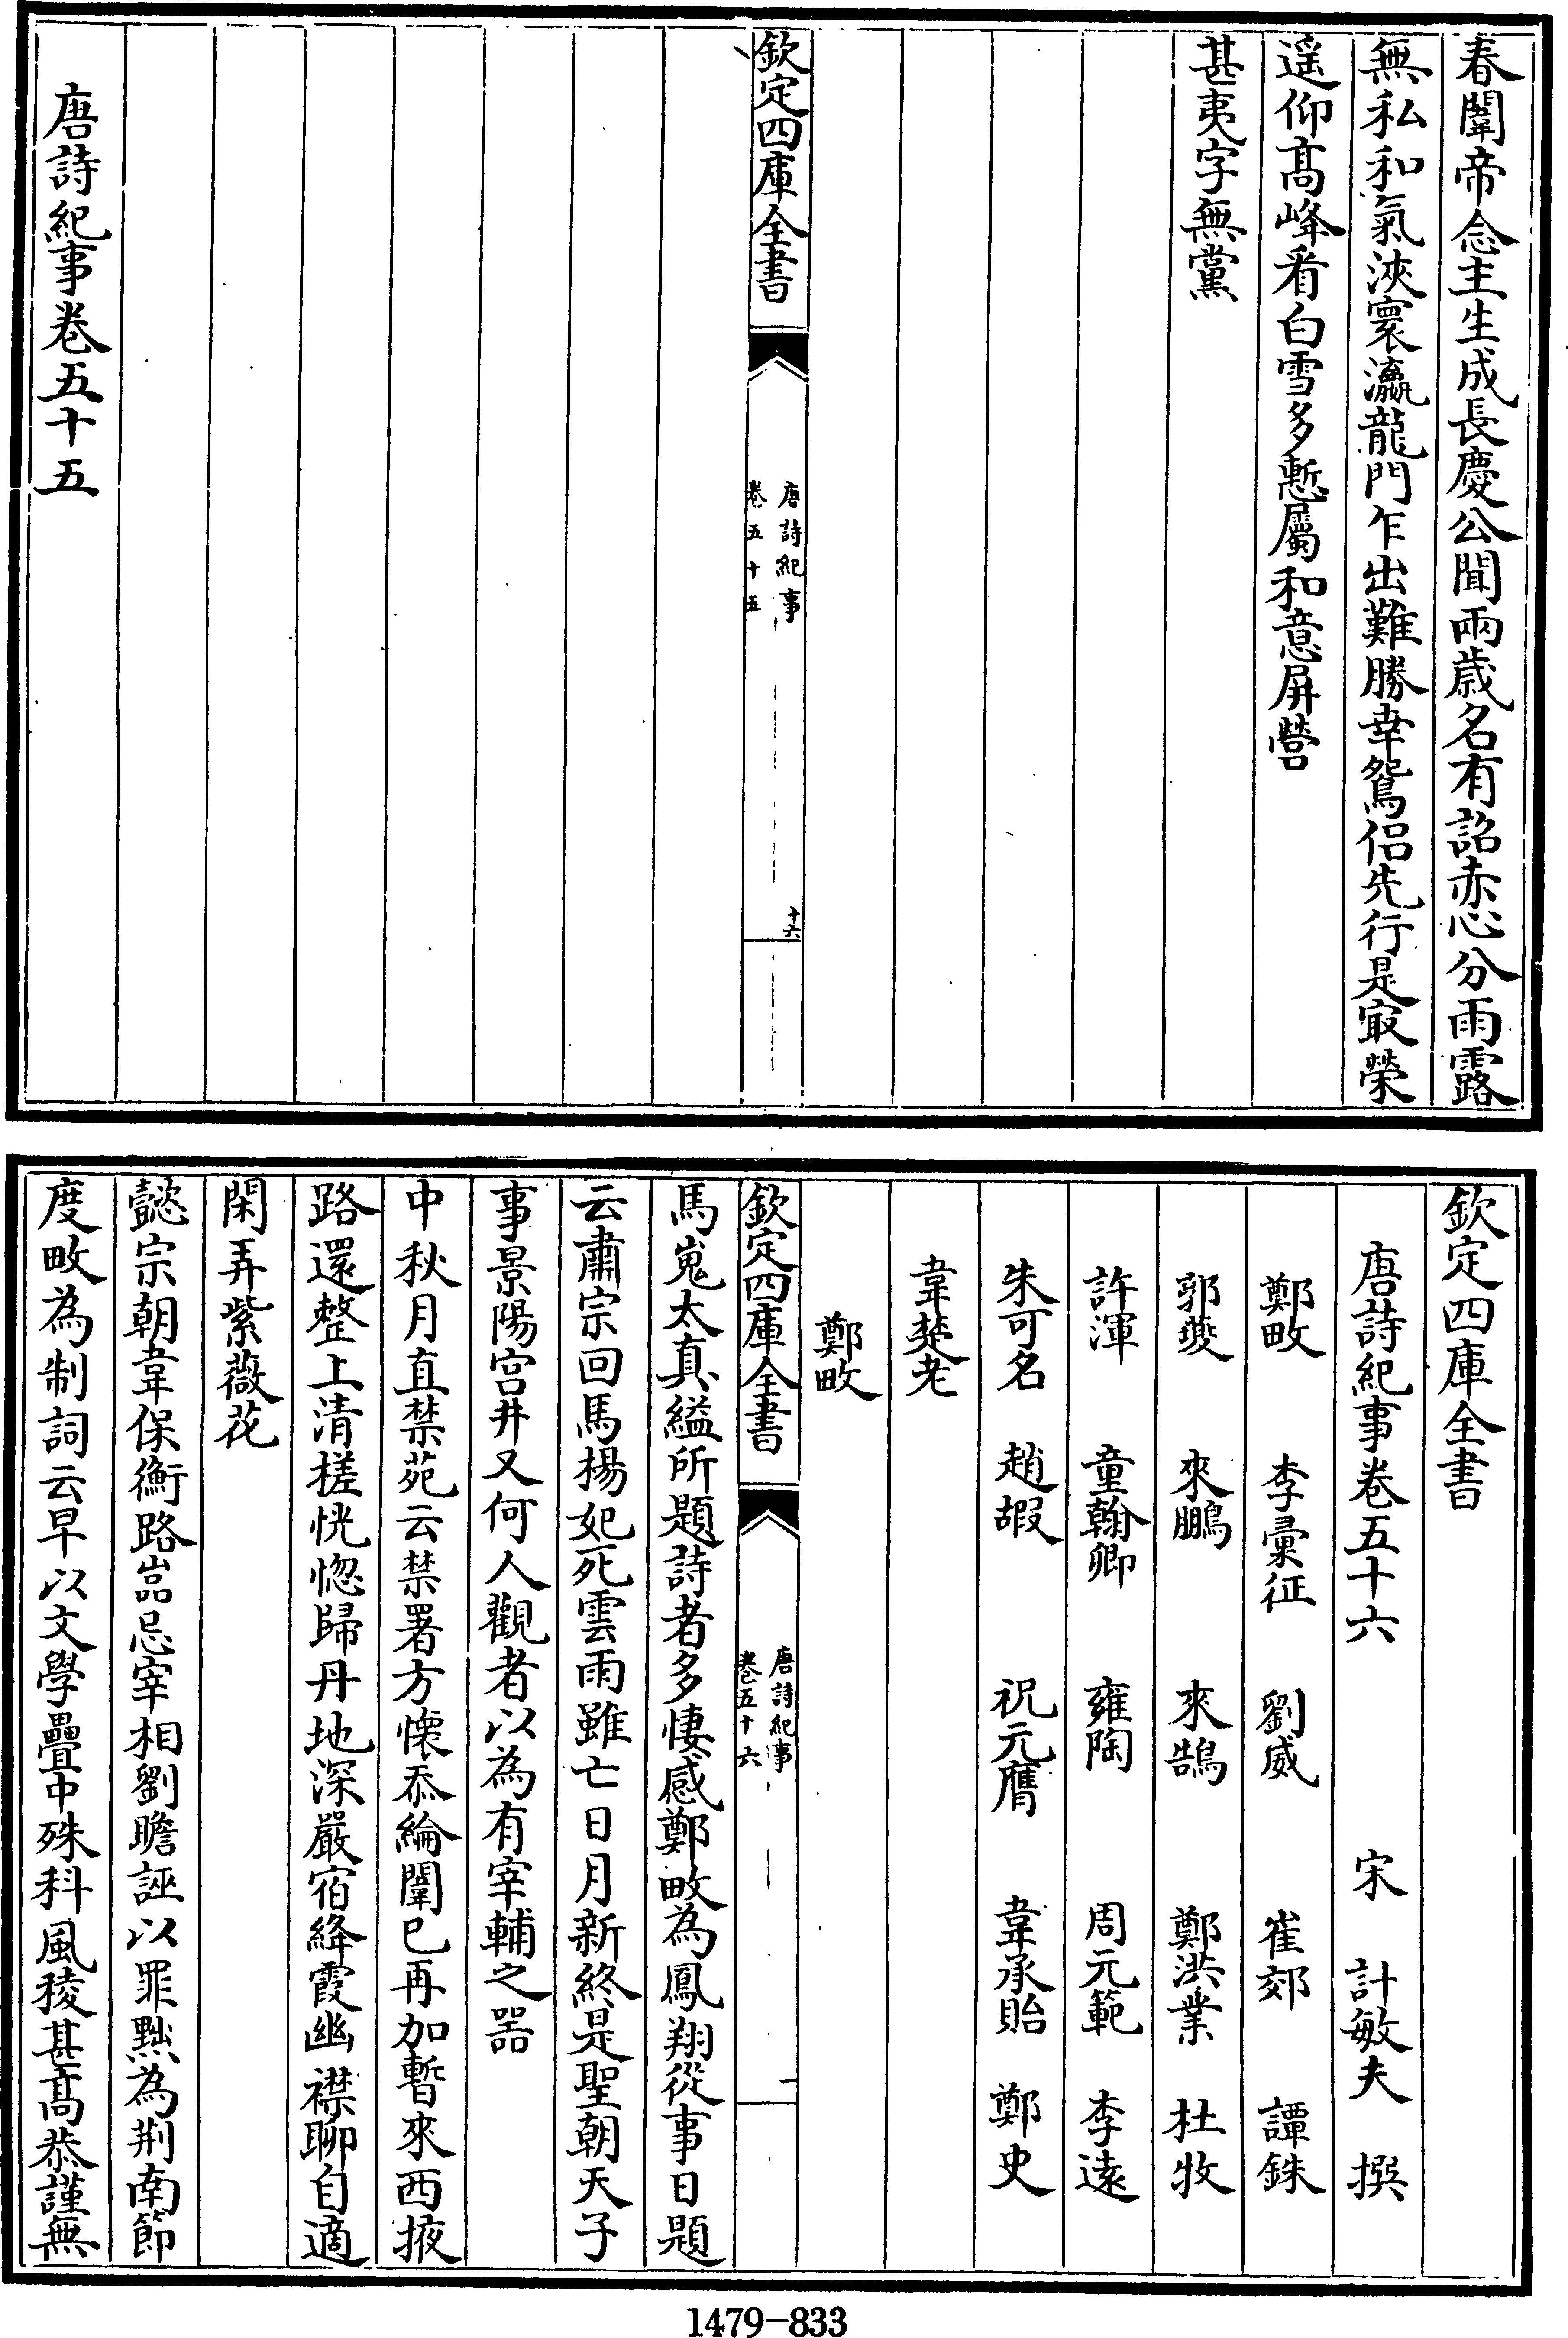 春闈帝念主生成長慶公聞兩歲名有詔赤心分雨露
無私和氣浹寰瀛龍門乍出難勝幸鴛侶先行是㝡榮
遥仰髙峰㸔白雪多慙屬和意屏營
甚夷字無黨
欽定四庫全書
唐詩紀事
卷五十五
十六
唐詩紀事卷五十五
欽定四庫全書
唐詩紀事卷五十六 宋 計敏夫 撰
鄭畋 李彙征 劉威 崔郊 譚銖
郭夔 來鵬 來鵠 鄭洪業 杜牧
許渾 童翰卿 雍陶 周元範 李遠
朱可名 趙嘏 祝元膺 韋承貽 鄭史
韋楚老
鄭畋
欽定四庫全書
唐詩紀事
卷五十六
一
馬嵬太真縊所題詩者多悽感鄭畋為鳳翔從事日題
云肅宗回馬楊妃死雲雨雖亡日月新終是聖朝天子
事景陽宫井又何人觀者以為有宰輔之器
中秋月直禁苑云禁署方懐忝綸闈已再加暫來西掖
路還整上清槎恍惚歸丹地深嚴宿絳霞幽襟聊自適
閑弄紫薇花
懿宗朝韋保衡路嵓忌宰相劉瞻誣以罪黜為荆南節
度畋為制詞云早以文學疊中殊科風稜甚髙恭謹無
1479-833